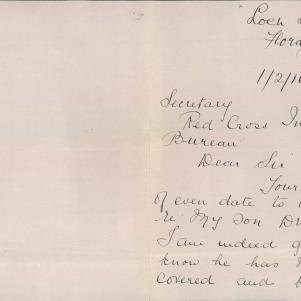 "Loch
Flora
1/2/1
Secretary
Red Cross In
Bureau
Dear Sir
Your
of even date to
re My Son Dr
I am indeed g
know he has
covered and